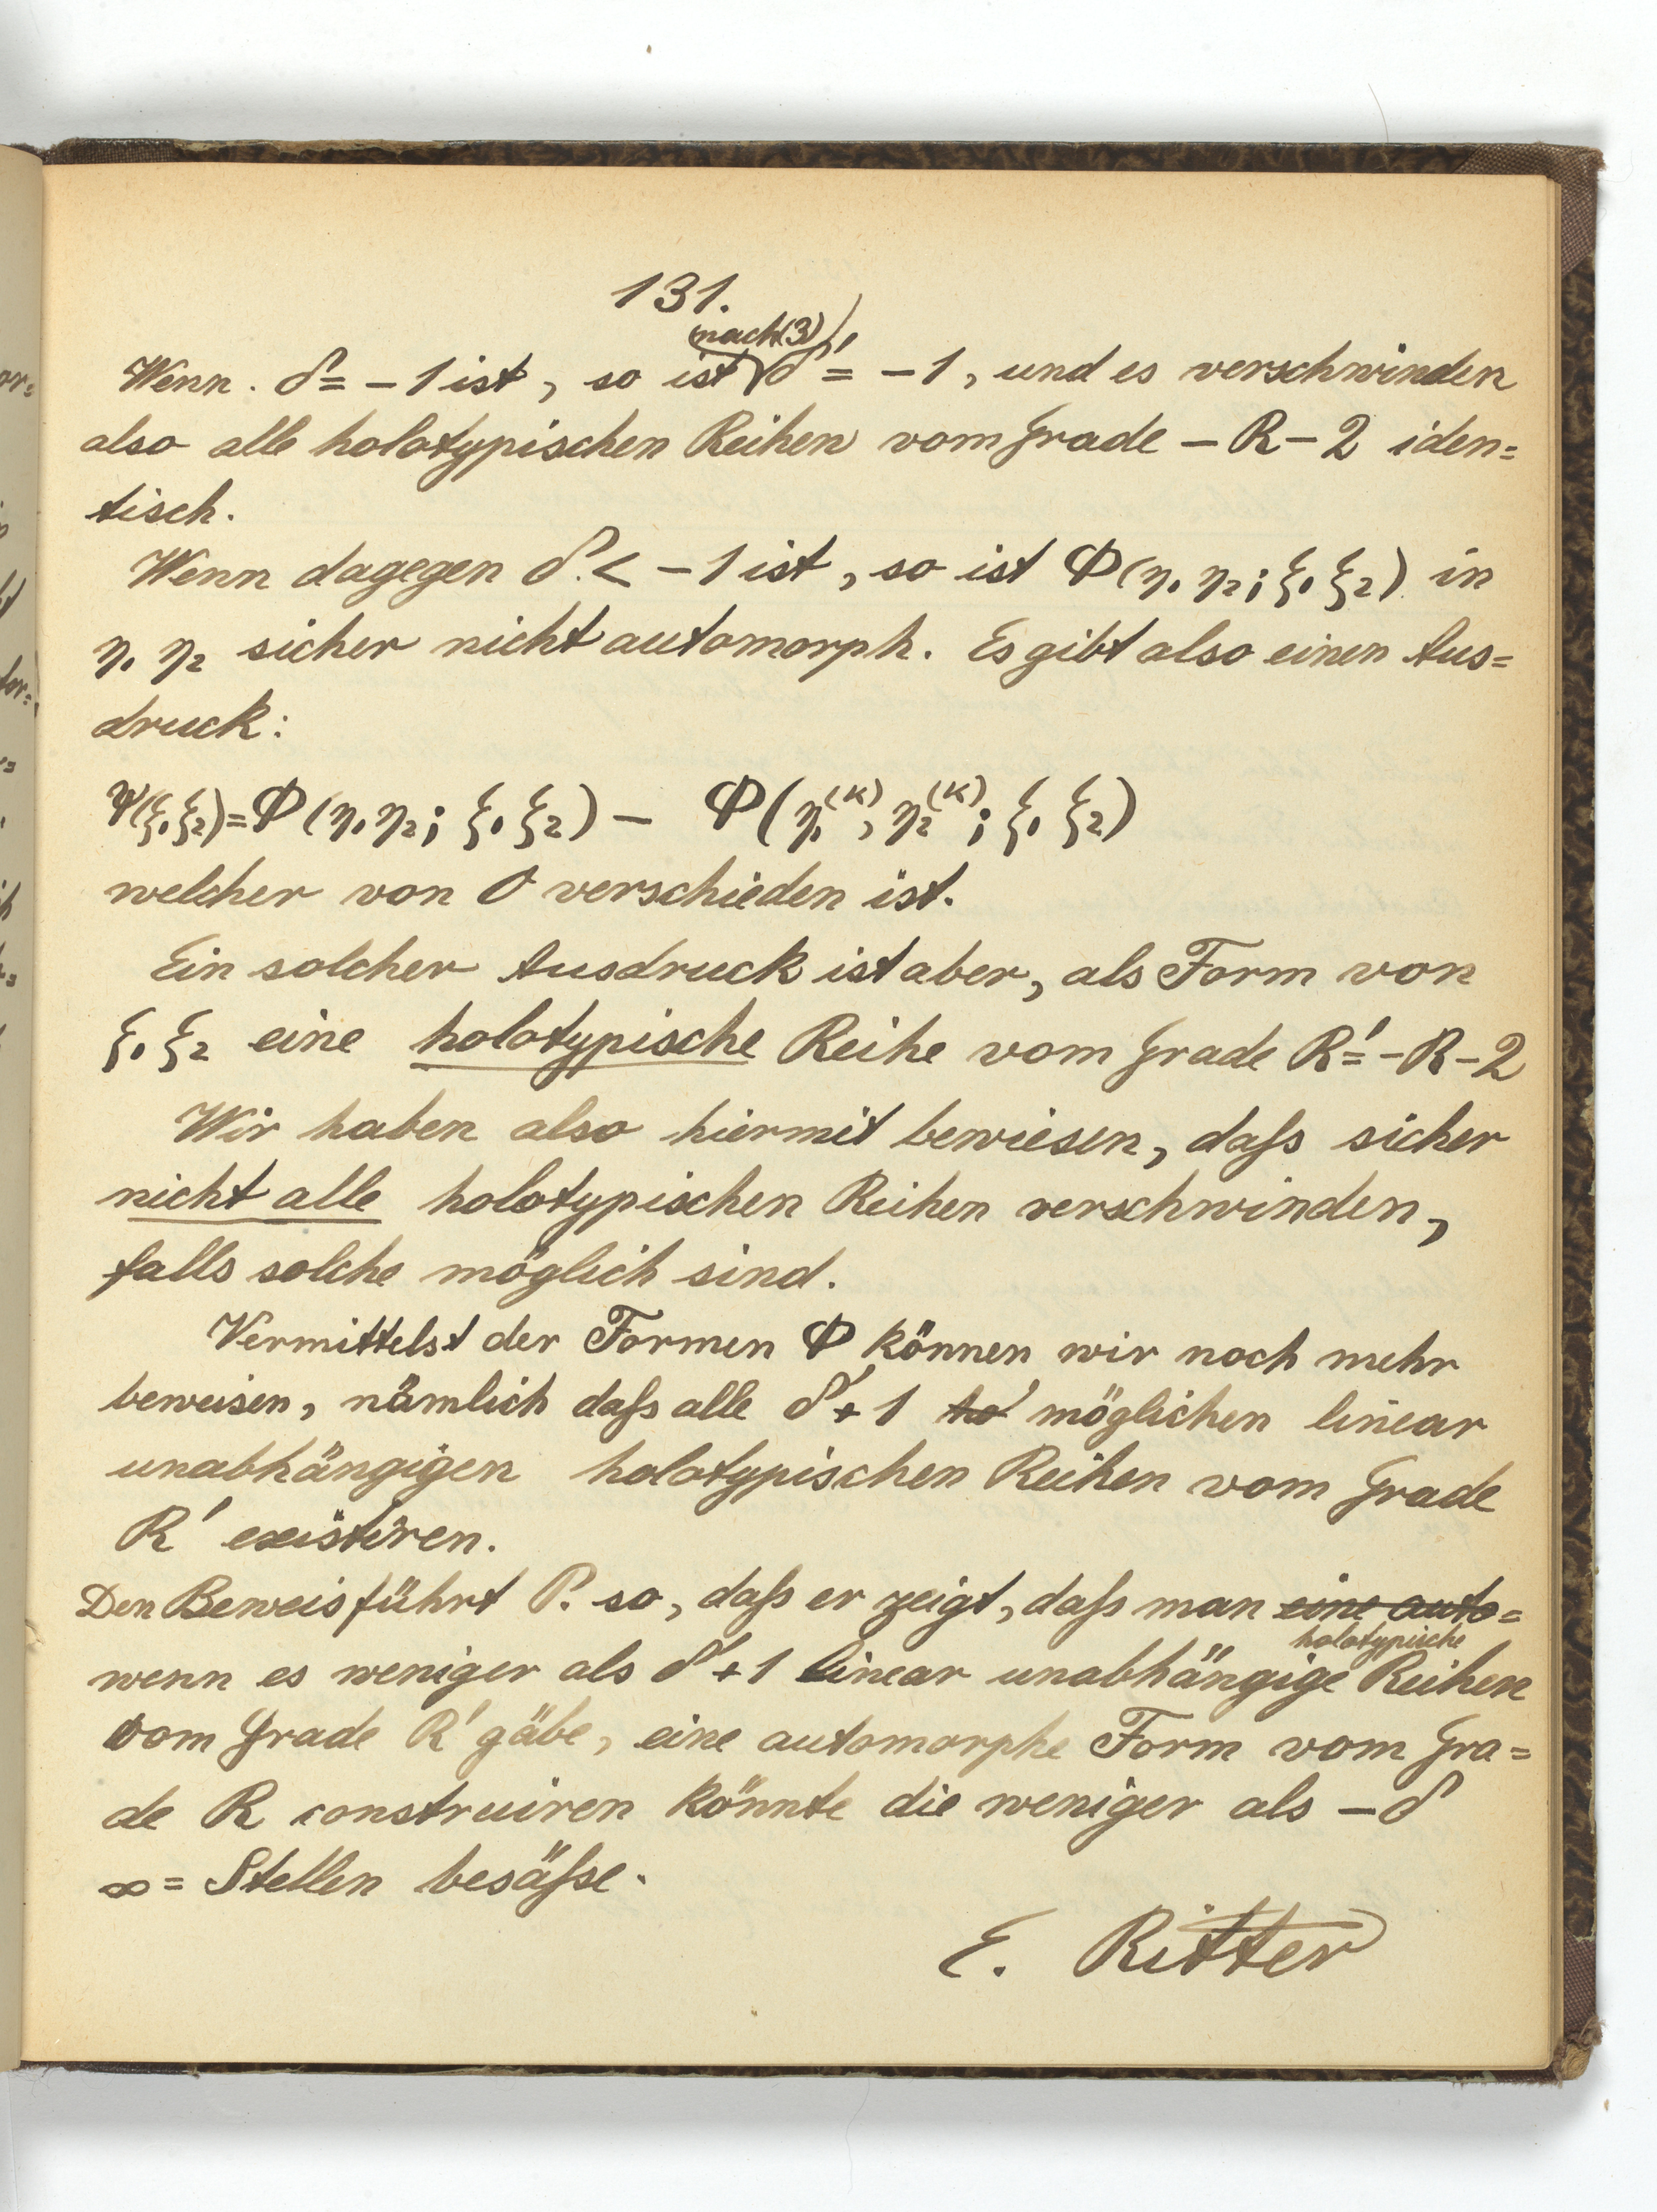 131.
Wenn. δ = – 1 ist, so ist (nach (3)) δ' = – 1, und es verschwinden
also alle holotypischen Reihen vom Grade – R – 2 iden=
tisch.
Wenn dagegen δ < – 1 ist, so ist Φ(η₁ η₂; ξ₁ ξ₂) in
η₁ η₂ sicher nicht automorph. Es gibt also einen Aus=
druck:
Ψ(ξ₁ξ₂) = Φ(η₁ η₂; ξ₁ ξ₂) – Φ(η₁⁽ᵏ⁾, η₂⁽ᵏ⁾; ξ₁ ξ₂)
welcher von 0 verschieden ist.
Ein solcher Ausdruck ist aber, als Form von
ξ₁ ξ₂ eine holotypische Reihe vom Grade R' = – R – 2
Wir haben also hiermit bewiesen, daſs sicher
nicht alle holotypischen Reihen verschwinden,
falls solche möglich sind.
Vermittelst der Formen Φ können wir noch mehr
beweisen, nämlich daſs alle δ' + 1 ho möglichen linear
unabhängigen holotypischen Reihen vom Grade
R' existiren.
Den Beweis führt P. so, daſs er zeigt, daſs man eine auto=
wenn es weniger als δ' + 1 linear unabhängige holotypische Reihen
vom Grade R' gäbe, eine automorphe Form vom Gra=
de R construiren könnte die weniger als – δ
∞ = Stellen besäſse.
E. Ritter